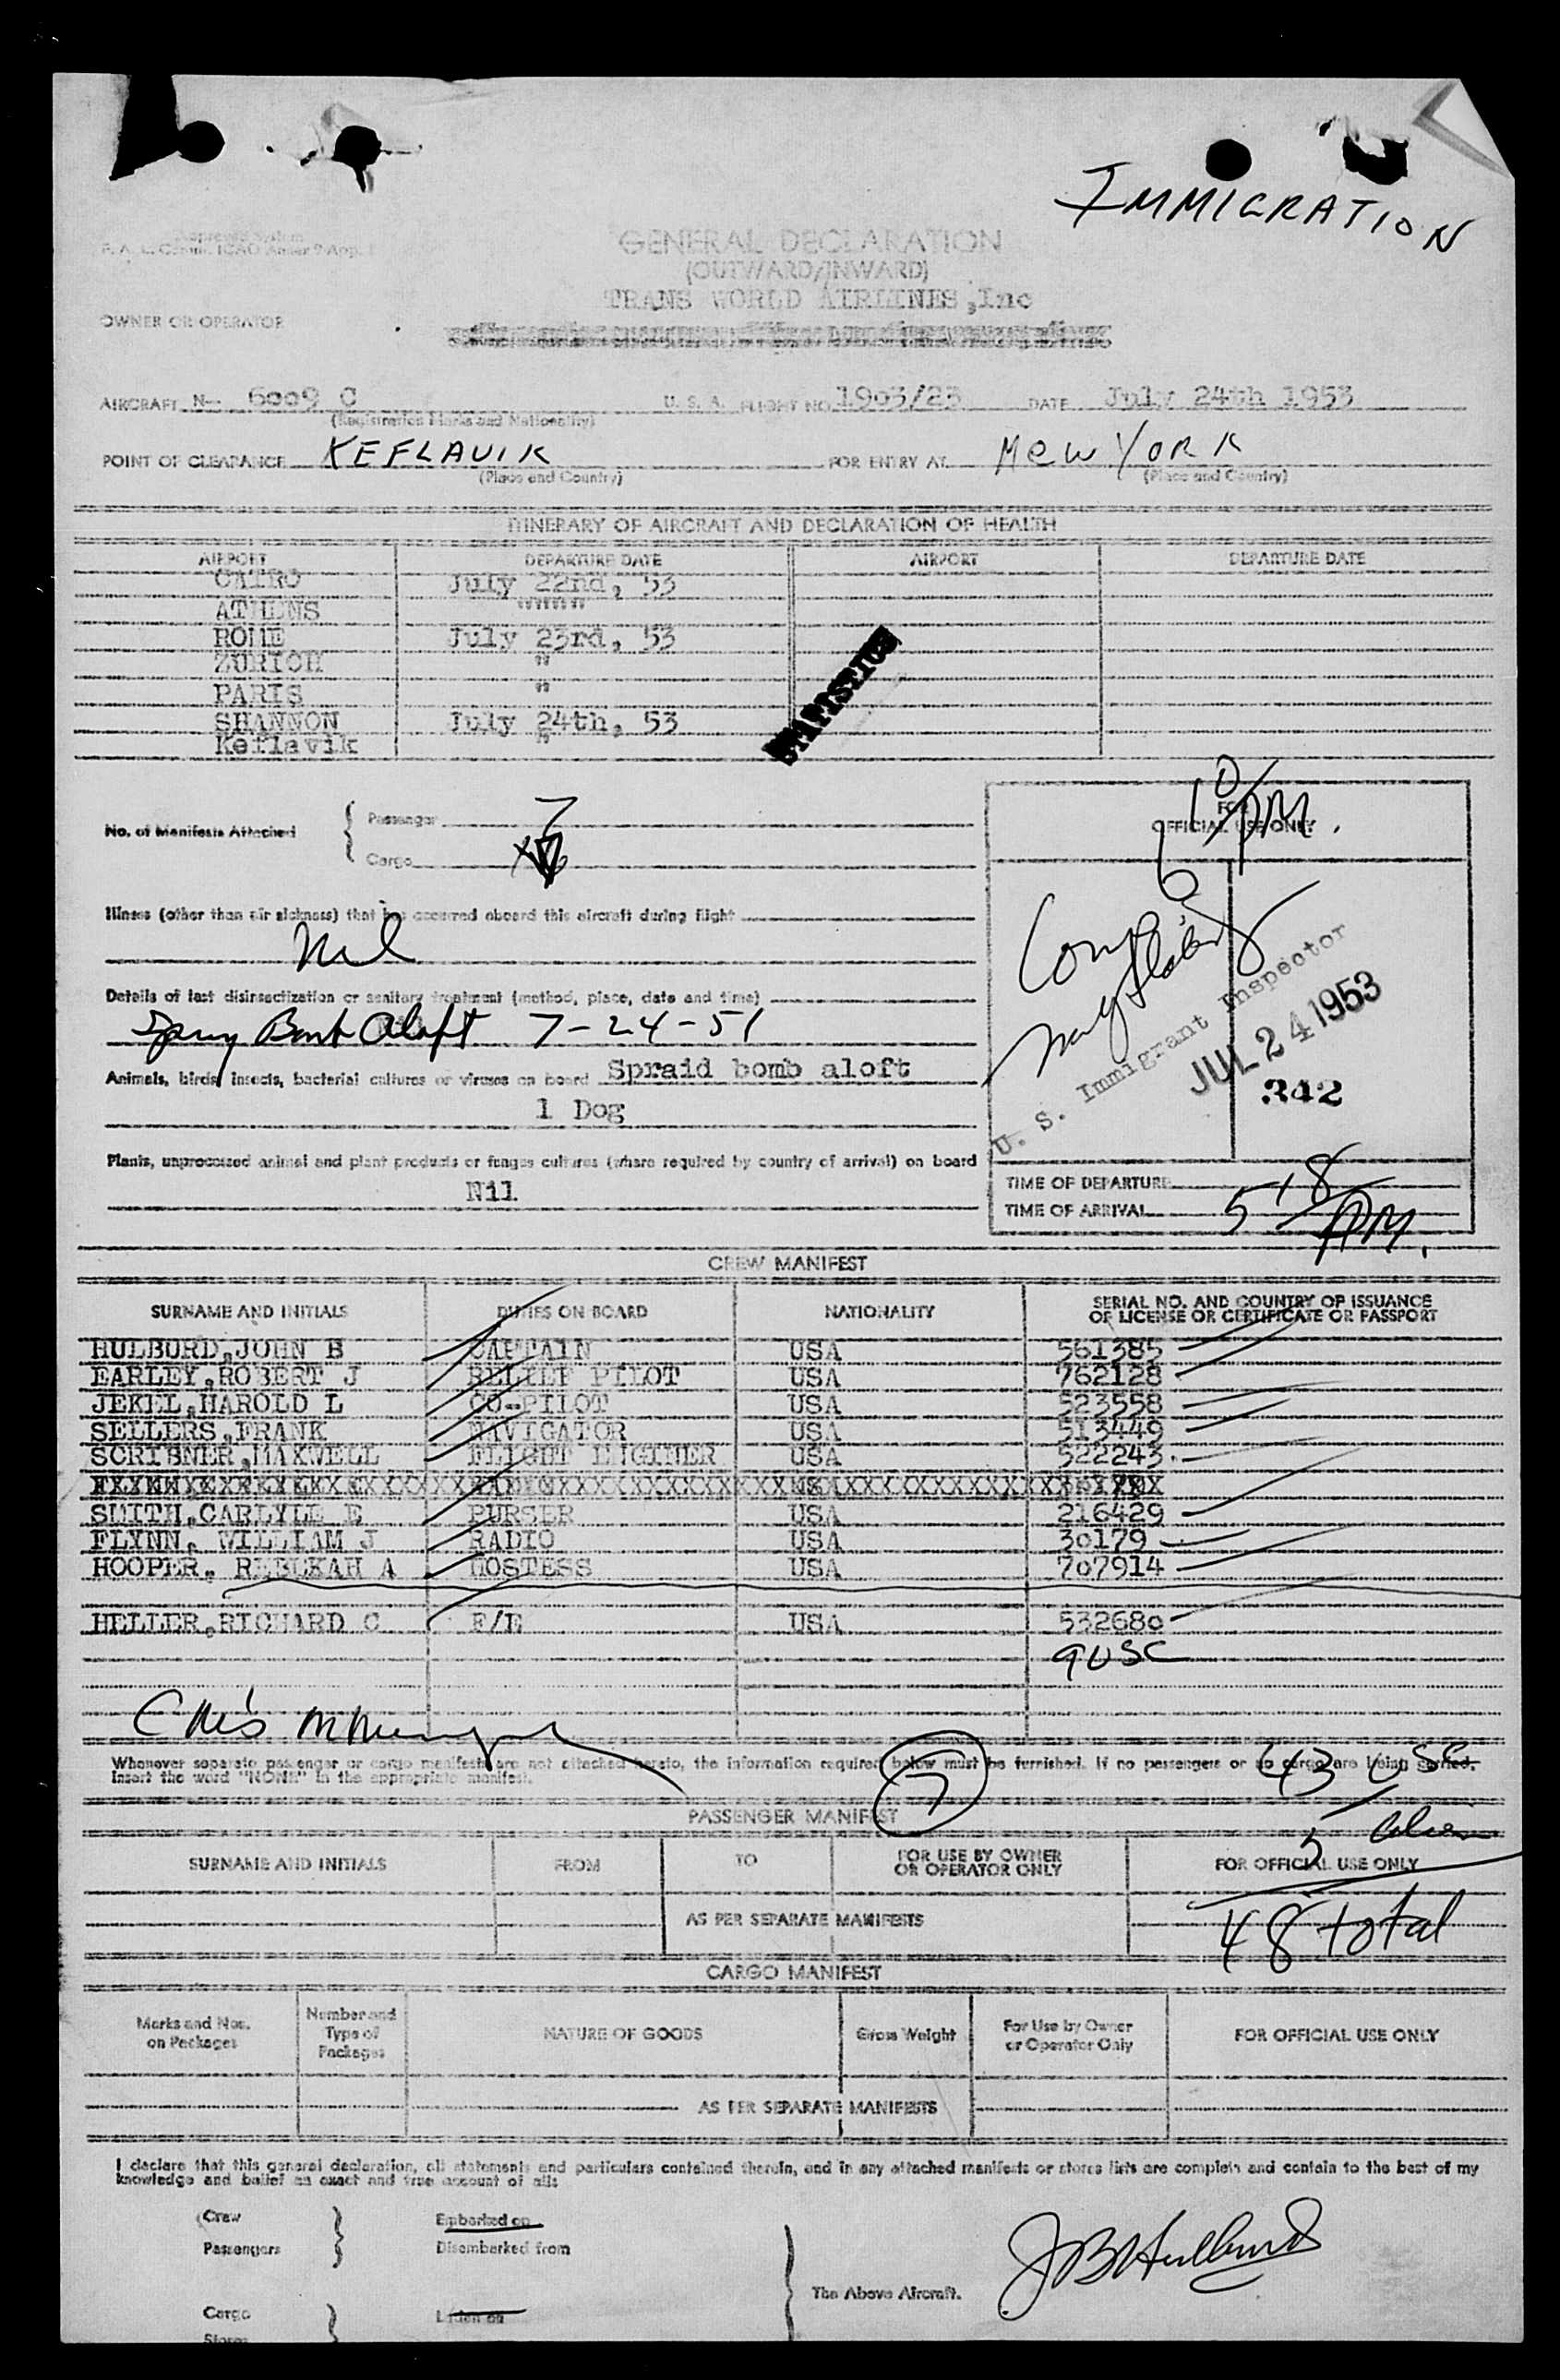 IMMIGRATION
GENERAL DECLARATION
(OUTWARD/INWARD)
TRANS WORLD AIRLINES,Inc
OWNER OR OPERATOR
AIRCRAFT N- 6009 C U. S. A. FLIGHT NO. 1903/23 DATE July 24th 1953
(Registration Marks and Nationality)
POINT OF CLEARANCE KEFLAVIK FOR ENTRY AT New YORK
(Place and Country) (Place and Country)
ITINERARY OF AIRCRAFT AND DECLARATION OF HEALTH
AIRPORT DEPARTURE DATE AIRPORT DEPARTURE DATE
CAIRO July 22nd, 53
ATHENS """""""
ROME July 23rd, 53
ZURICH "
PARIS "
SHANNON July 24th, 53
Keflavik "
STATISTICS
No. of Manifests Attached Passenger 7
Cargo
FOR
OFFICIAL USE ONLY
6 10/PM.
Illness (other than air sickness) that has occurred aboard this aircraft during flight
Nil
Details of last disinsectization or sanitary treatment (method, place, date and time)
Spray Bomb Aloft 7-24-51
Animals, birds, insects, bacterial cultures or viruses on board Spraid bomb aloft
1 Dog
Plants, unprocessed animal and plant products or fungus cultures (where required by country of arrival) on board
Nil
U. S. Immigrant Inspector
JUL 24 1953
342
TIME OF DEPARTURE
TIME OF ARRIVAL 5 18/PM.
CREW MANIFEST
SURNAME AND INITIALS DUTIES ON BOARD NATIONALITY SERIAL NO. AND COUNTRY OF ISSUANCE
OF LICENSE OR CERTIFICATE OR PASSPORT
HULBURD,JOHN B CAPTAIN USA 561385
EARLEY,ROBERT J RELIEF PILOT USA 762128
JEKEL,HAROLD L CO-PILOT USA 523558
SELLERS,FRANK NAVIGATOR USA 513449
SCRIBNER,MAXWELL FLIGHT ENGINEER USA 522243
SMITH,CARLYLE E PURSER USA 216429
FLYNN, WILLIAM J RADIO USA 30179
HOOPER, REBEKAH A HOSTESS USA 707914
HELLER,RICHARD C F/E USA 532680
9 USC
Whenever separate passenger or cargo manifests are not attached hereto, the information required below must be furnished. If no passengers or no cargo are being carried,
insert the word "NONE" in the appropriate manifest.
7
43 USC
5 Alien
48 total
PASSENGER MANIFEST
SURNAME AND INITIALS FROM TO FOR USE BY OWNER
OR OPERATOR ONLY FOR OFFICIAL USE ONLY
AS PER SEPARATE MANIFESTS
CARGO MANIFEST
Marks and Nos.
on Packages Number and
Type of
Packages NATURE OF GOODS Gross Weight For Use by Owner
or Operator Only FOR OFFICIAL USE ONLY
AS PER SEPARATE MANIFESTS
I declare that this general declaration, all statements and particulars contained therein, and in any attached manifests or stores lists are complete and contain to the best of my
knowledge and belief an exact and true account of all:
Crew Embarked on
Passengers Disembarked from
The Above Aircraft. JB Hulburd
Cargo Laden on
Stores